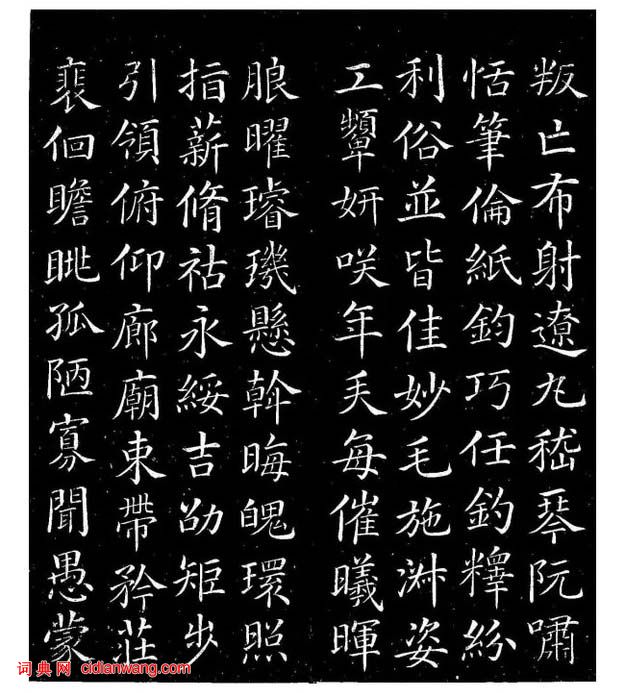 叛亡布射遼丸嵇琴阮嘯
恬筆倫紙鈞巧任釣釋紛
利俗並皆佳妙毛施淑姿
工顰妍咲年矢每催曦暉
朗曜璿璣懸斡晦魄環照
指薪脩祜永綏吉劭矩步
引領俯仰廊廟束帶矜莊
裴佪瞻眺孤陋寡聞愚蒙
词典网 cidianwang.com